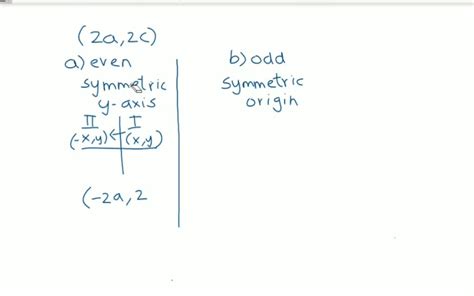 (2a, 2c)
a) even
symmetric
y-axis
II I
(-x,y) ← (x,y)
(-2a, 2
b) odd
symmetric
origin